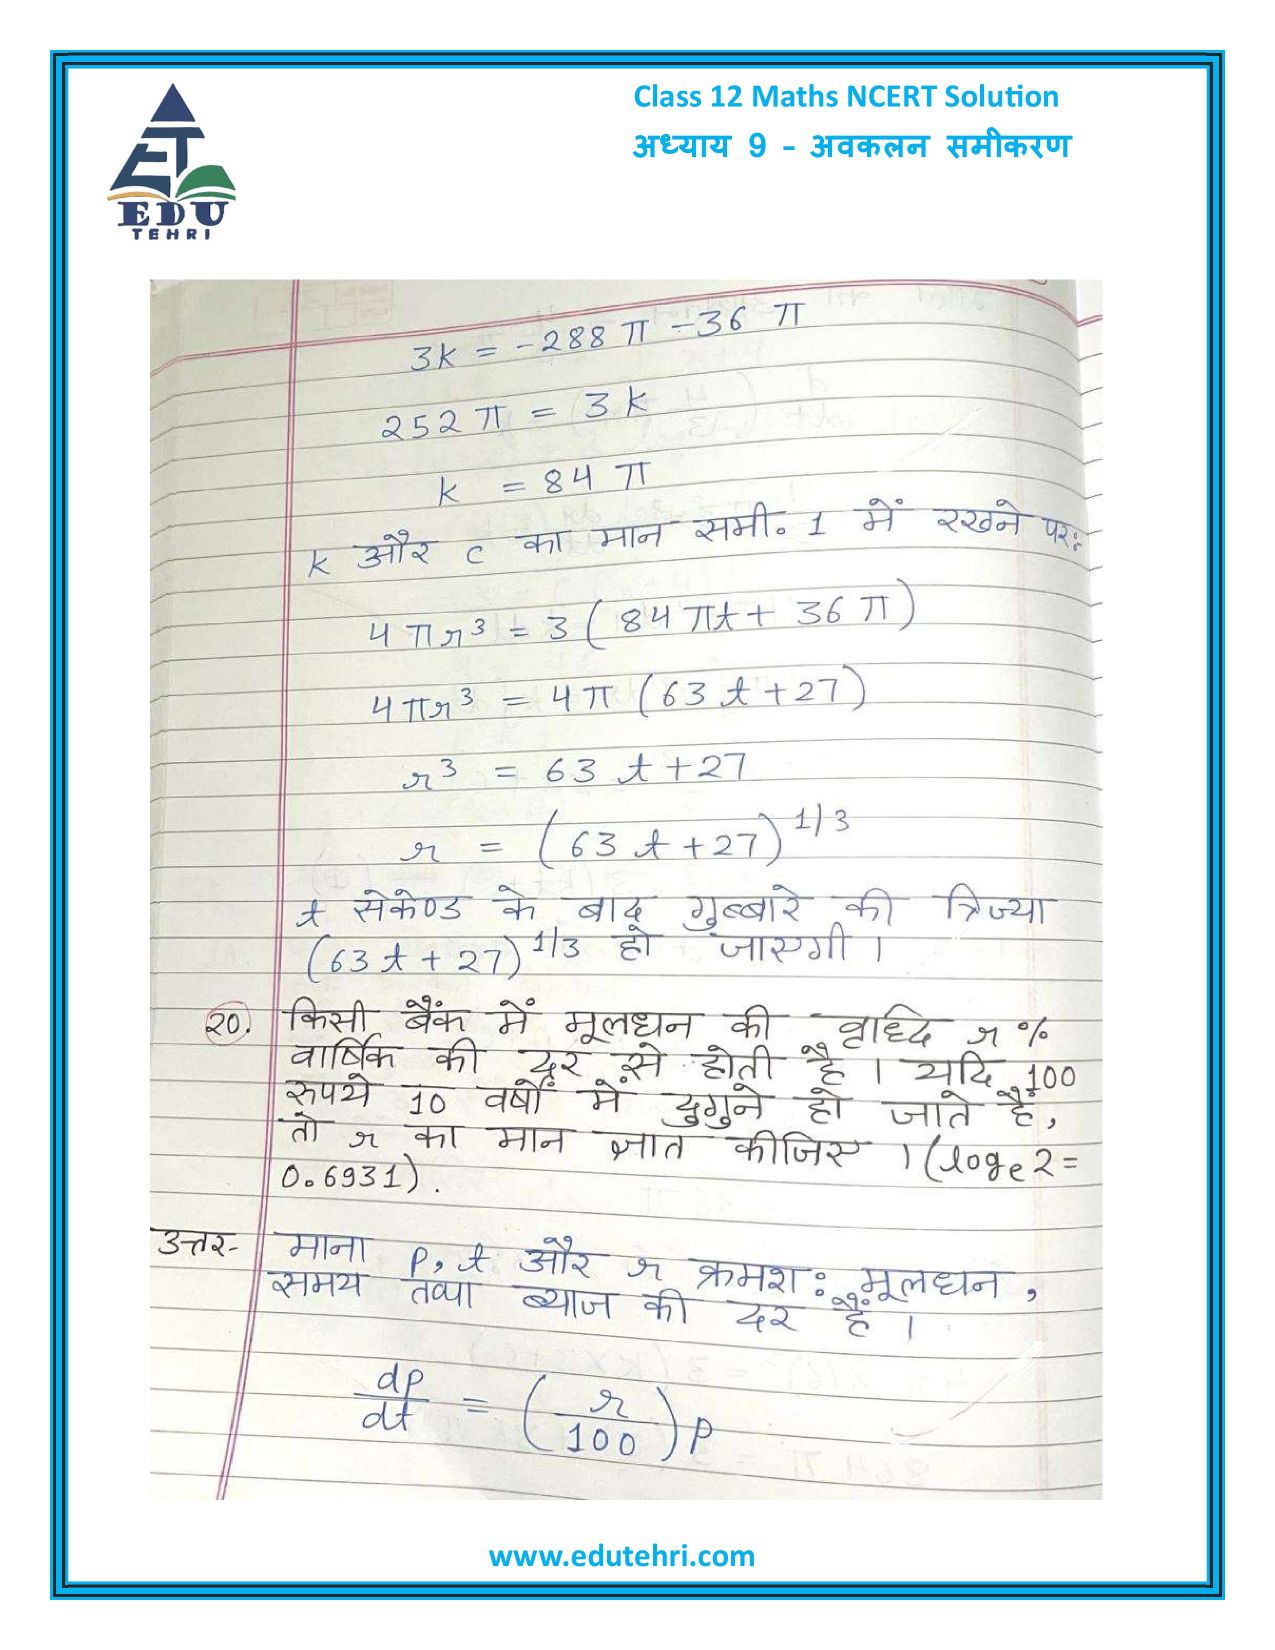 Class 12 Maths NCERT Solution
अध्याय 9 – अवकलन समीकरण
EDU
TEHRI
3k = -288 π - 36 π
252 π = 3 k
k = 84 π
k और c का मान समी. 1 में रखने पर:
4 π r³ = 3 ( 84 π t + 36 π )
4 π r³ = 4 π ( 63 t + 27 )
r³ = 63 t + 27
r = ( 63 t + 27 )^1/3
t सेकेण्ड के बाद गुब्बारे की त्रिज्या
( 63 t + 27 )^1/3 हो जाएगी ।
20. किसी बैंक में मूलधन की वृध्दि r %
वार्षिक की दर से होती है । यदि 100
रुपये 10 वर्षों में दुगुने हो जाते हैं,
तो r का मान ज्ञात कीजिए । ( log_e 2 =
0.6931).
उत्तर- माना p, t और r क्रमश: मूलधन ,
समय तथा ब्याज की दर हैं ।
dp/dt = ( r/100 ) p
www.edutehri.com